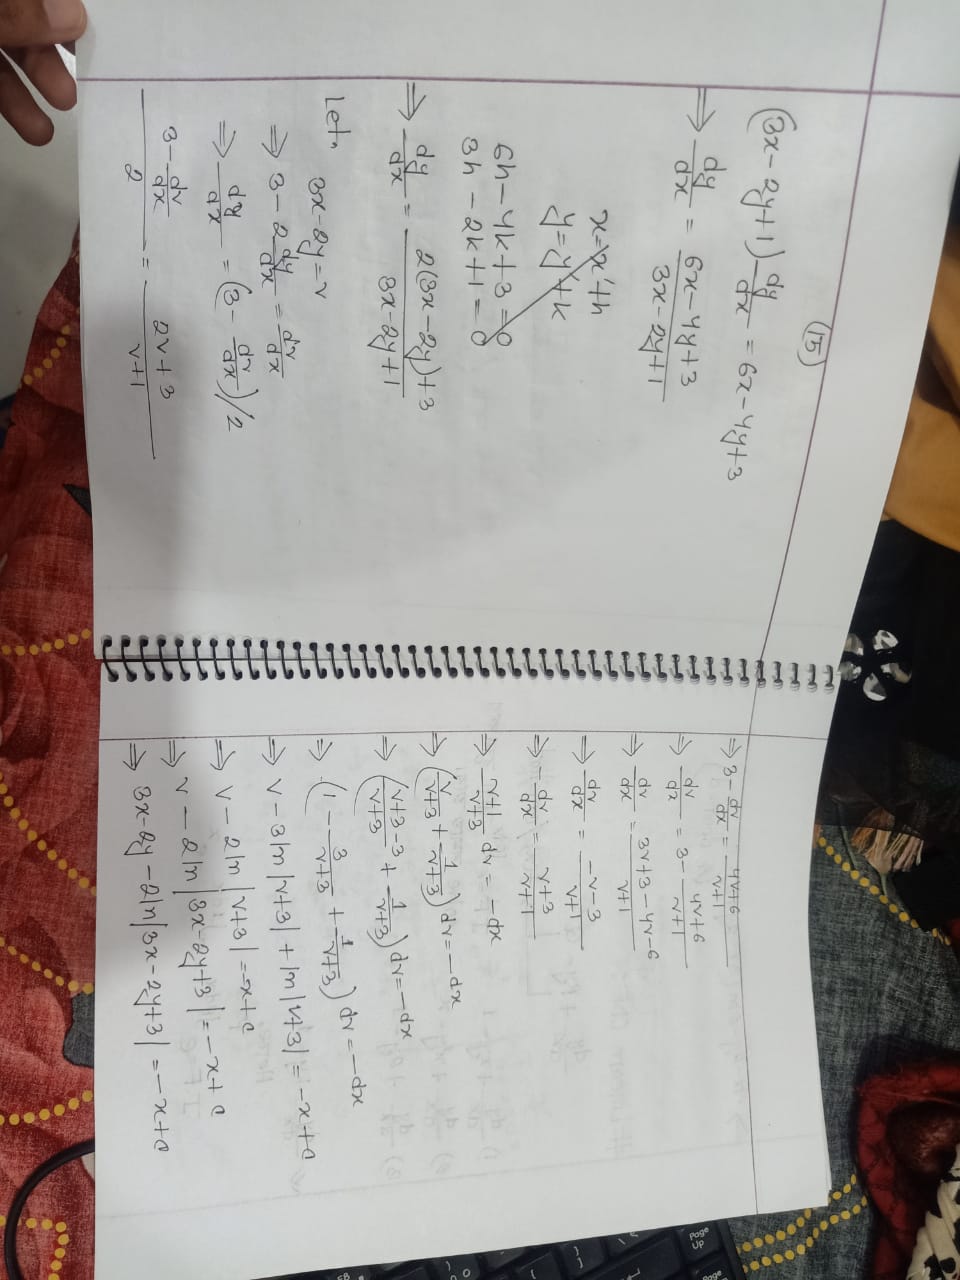 (15)
(3x-2y+1) dy/dx = 6x-4y+3
⇒ dy/dx = (6x-4y+3)/(3x-2y+1)
x=x'+h
y=y'+k
6h-4k+3=0
3h-2k+1=0
⇒ dy/dx = (2(3x-2y)+3)/(3x-2y+1)
Let,
3x-2y=v
⇒ 3-2 dy/dx = dv/dx
⇒ dy/dx = (3- dv/dx)/2
(3- dv/dx)/2 = (2v+3)/(v+1)
⇒ 3- dv/dx = (4v+6)/(v+1)
⇒ dv/dx = 3- (4v+6)/(v+1)
⇒ dv/dx = (3v+3-4v-6)/(v+1)
⇒ dv/dx = (-v-3)/(v+1)
⇒ - dv/dx = (v+3)/(v+1)
⇒ (v+1)/(v+3) dv = -dx
⇒ (v/(v+3) + 1/(v+3)) dv = -dx
⇒ ((v+3-3)/(v+3) + 1/(v+3)) dv = -dx
⇒ (1- 3/(v+3) + 1/(v+3)) dv = -dx
⇒ v-3ln|v+3|+ln|v+3|=-x+c
⇒ v-2ln|v+3|=-x+c
⇒ v-2ln|3x-2y+3|=-x+c
⇒ 3x-2y-2ln|3x-2y+3|=-x+c
Page
Up
Page